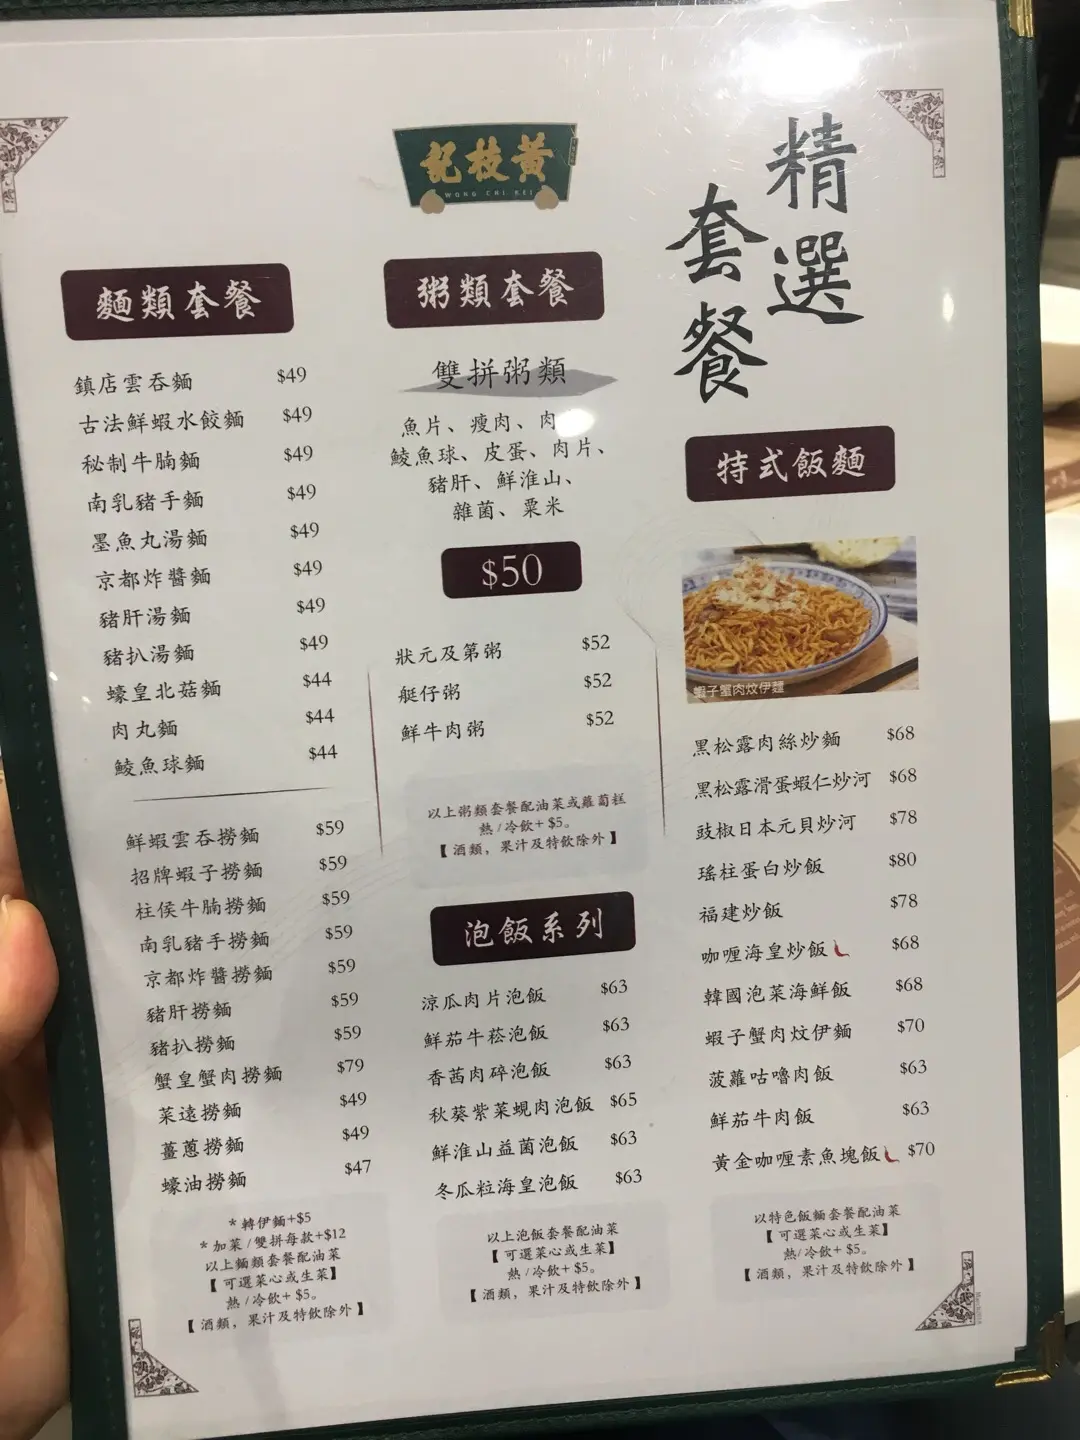 黃枝記
WONG CHI KEI
精選
套餐
麵類套餐
鎮店雲吞麵 $49
古法鮮蝦水餃麵 $49
秘制牛腩麵 $49
南乳豬手麵 $49
墨魚丸湯麵 $49
京都炸醬麵 $49
豬肝湯麵 $49
豬扒湯麵 $49
蠔皇北菇麵 $44
肉丸麵 $44
鯪魚球麵 $44
鮮蝦雲吞撈麵 $59
招牌蝦子撈麵 $59
柱侯牛腩撈麵 $59
南乳豬手撈麵 $59
京都炸醬撈麵 $59
豬肝撈麵 $59
豬扒撈麵 $59
蟹皇蟹肉撈麵 $79
菜遠撈麵 $49
薑蔥撈麵 $49
蠔油撈麵 $47
*轉伊麵+$5
*加菜/雙拼每款+$12
以上麵類套餐配油菜
【可選菜心或生菜】
熱/冷飲+$5。
【酒類，果汁及特飲除外】
粥類套餐
雙拼粥類
魚片、瘦肉、肉
鯪魚球、皮蛋、肉片、
豬肝、鮮淮山、
雜菌、粟米
$50
狀元及第粥 $52
艇仔粥 $52
鮮牛肉粥 $52
以上粥類套餐配油菜或蘿蔔糕
熱/冷飲+$5。
【酒類，果汁及特飲除外】
泡飯系列
涼瓜肉片泡飯 $63
鮮茄牛菘泡飯 $63
香茜肉碎泡飯 $63
秋葵紫菜蜆肉泡飯 $65
鮮淮山益菌泡飯 $63
冬瓜粒海皇泡飯 $63
以上泡飯套餐配油菜
【可選菜心或生菜】
熱/冷飲+$5。
【酒類，果汁及特飲除外】
特式飯麵
蝦子蟹肉炆伊麵
黑松露肉絲炒麵 $68
黑松露滑蛋蝦仁炒河 $68
豉椒日本元貝炒河 $78
瑤柱蛋白炒飯 $80
福建炒飯 $78
咖喱海皇炒飯 $68
韓國泡菜海鮮飯 $68
蝦子蟹肉炆伊麵 $70
菠蘿咕嚕肉飯 $63
鮮茄牛肉飯 $63
黃金咖喱素魚塊飯 $70
以特色飯麵套餐配油菜
【可選菜心或生菜】
熱/冷飲+$5。
【酒類，果汁及特飲除外】